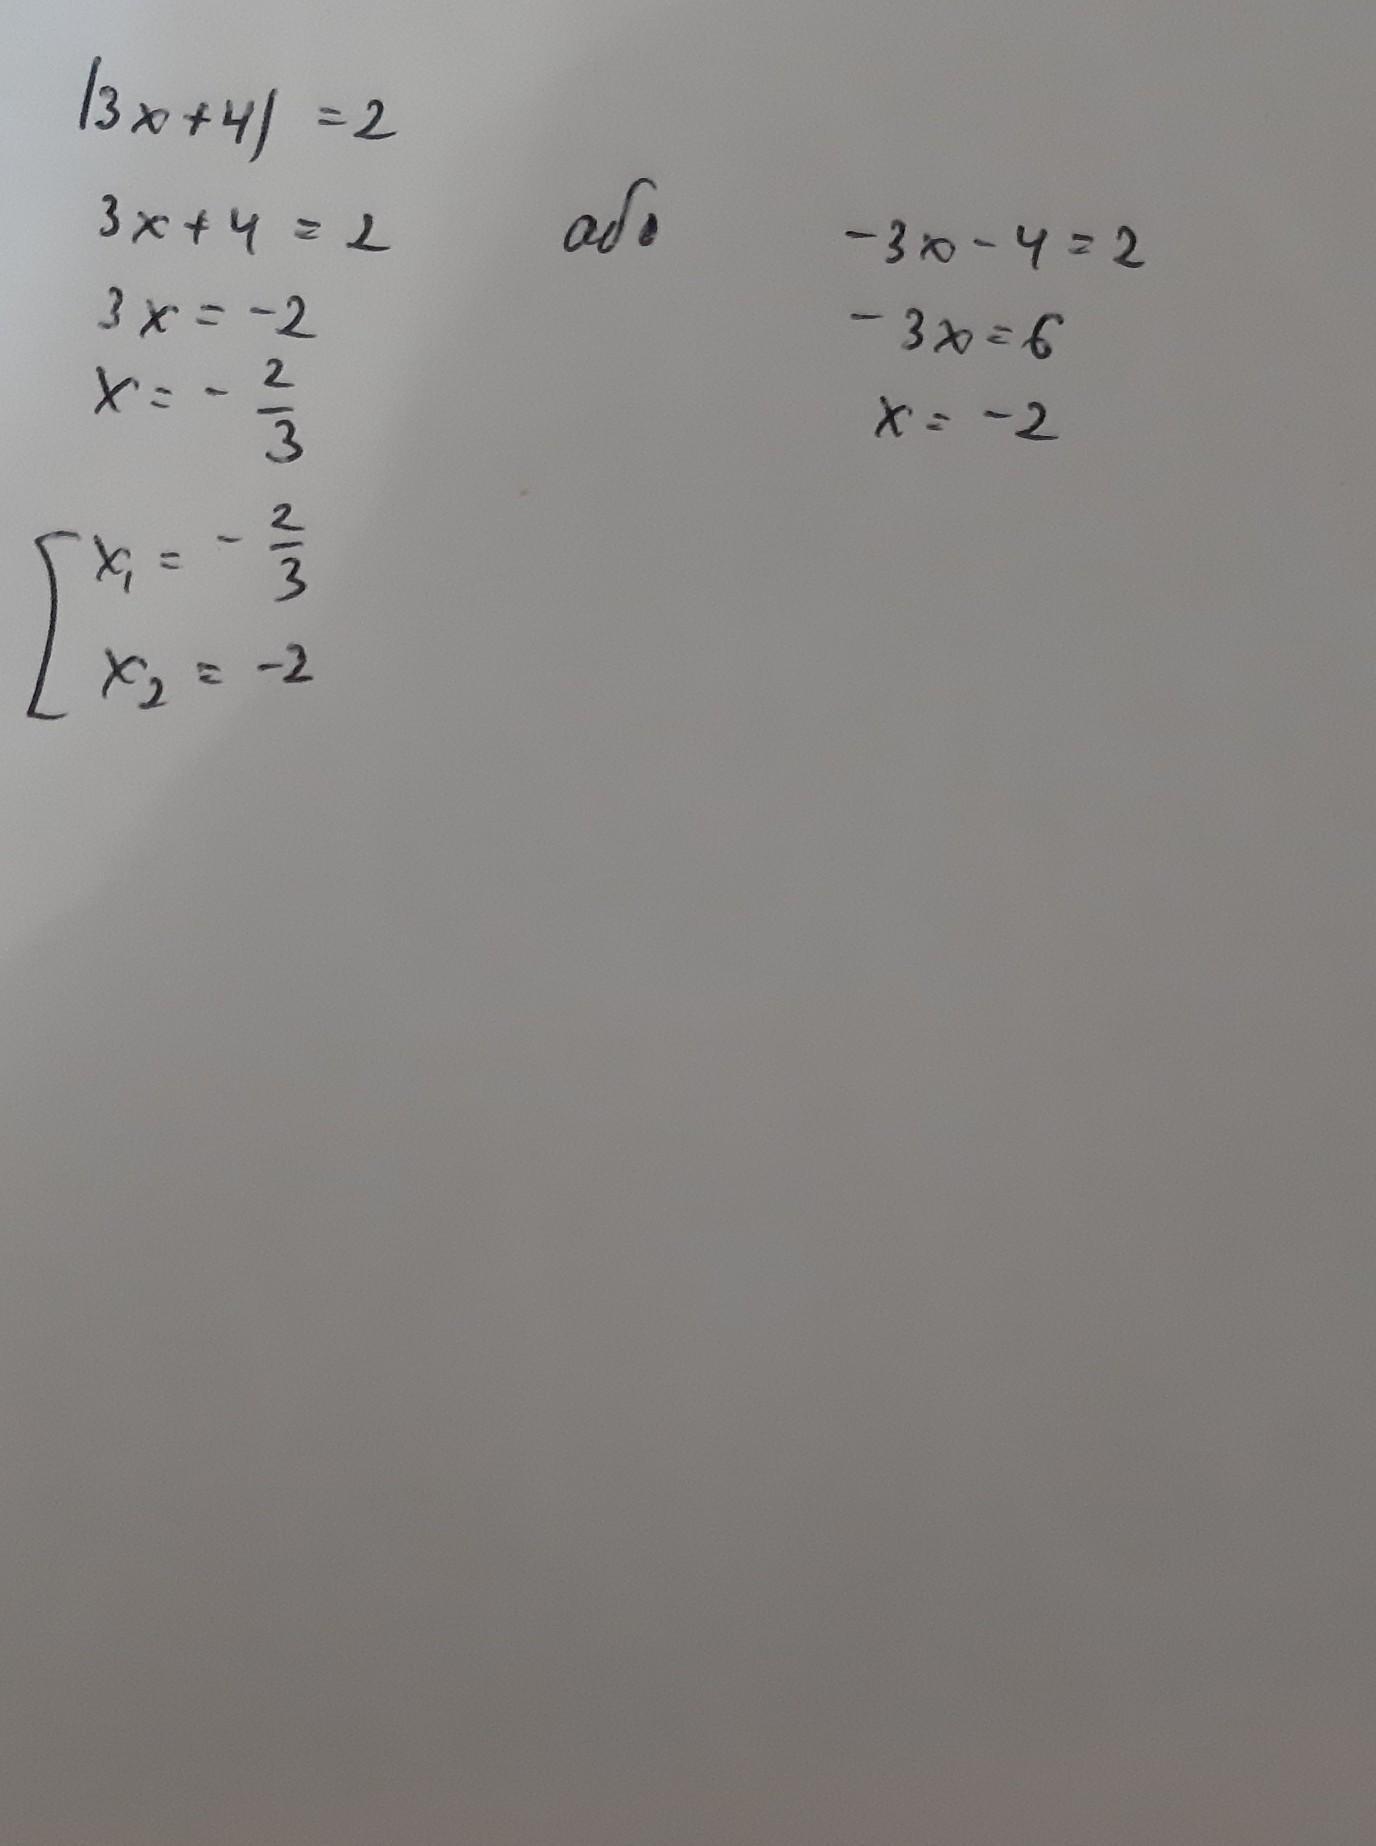 |3x+4| = 2
3x+4 = 2 або -3x-4=2
3x = -2 -3x=6
x = -2/3 x = -2
[ x₁ = -2/3
x₂ = -2